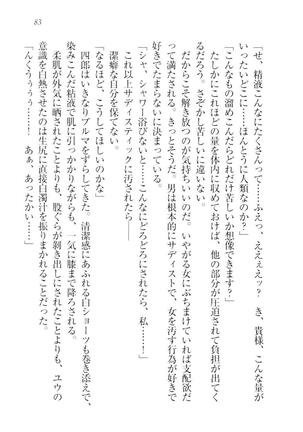 83
「せ、精液こんなにたくさんって……ふえっ、ええぇえッ？　き、貴様、こんな量が
いったいどこに……ほんとうに人類なのか？」
「こんなもの溜めこんだらどれだけ苦しいか想像できます？」
たしかにこれほどの量を体内に収めておけば、他の部分が圧迫されて負担が出てく
るだろう。さぞかし苦しいに違いない。
だからこそ解き放つのが気持ちいいのだ。いやがる女にぶちまけていれば支配欲だ
って満たされるだろう。きっとそうだ。男は根本的にサディストで、女を汚す行為が好きで
好きでたまらないに決まっている。
「シャ、シャワー浴びないと……こんなにどろどろにされたら、私……！」
これ以上サディスティックに汚されたら――
潔癖な自分を保てない。
「なるほど、こうしてほしいのかな」
四郎はいきなりブルマをずらしてきた。清潔感にあふれる白ショーツも巻き添えで、
染みこんだ粘液で肌に引っかかりながらも、一気に膝まで降ろされる。
柔肌が外気に晒されたことよりも、股ぐらが剥き出しにされたことよりも、ユウの
意識を白熱させたのは生尻に直接白濁汁を振りまかれることだった。
「んくうぅうぅ……！　あぁ、あったかい……！」